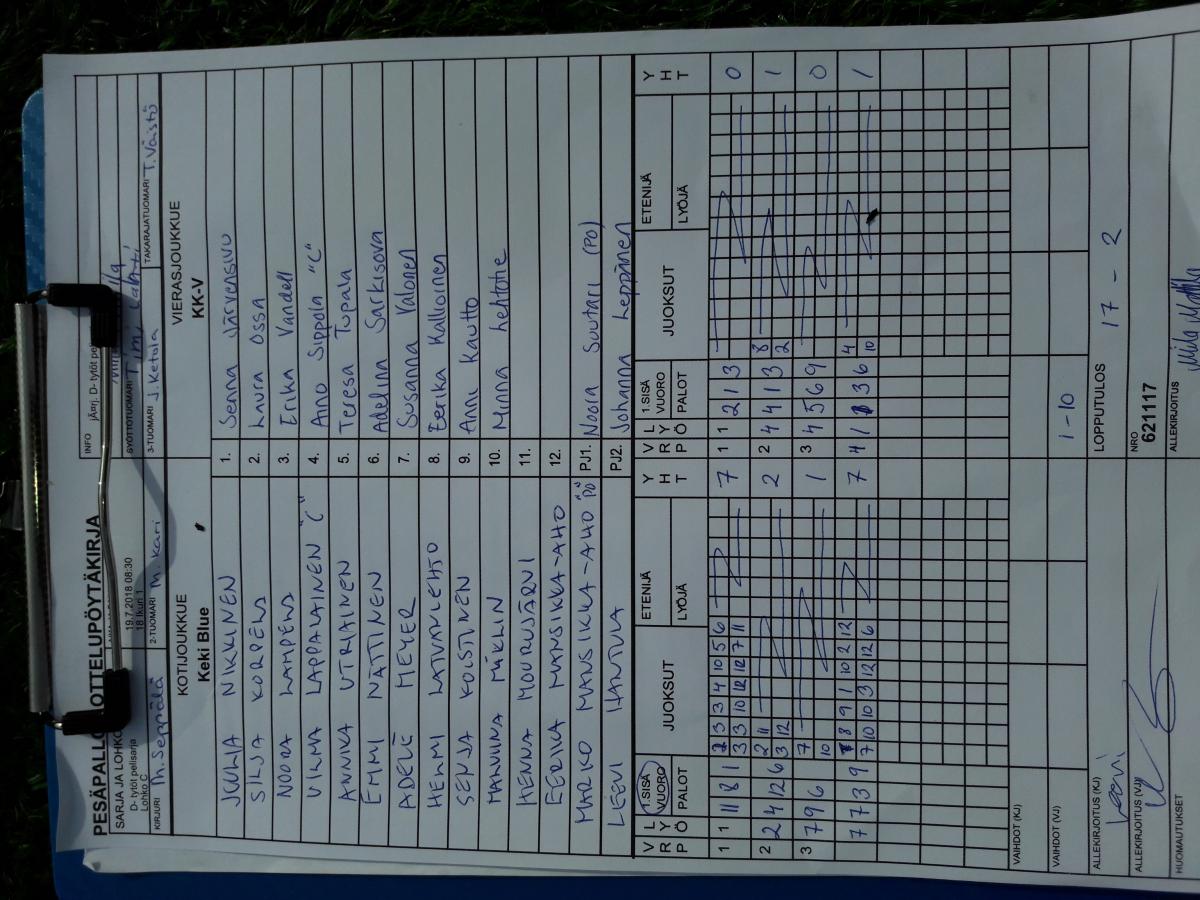 PESÄPALLO OTTELUPÖYTÄKIRJA
SARJA JA LOHKO
D- tytöt pelisarja
Lohko C
19.7.2018 08:30
18 Ikuri 1
INFO
SYÖTTÖTUOMARI
KIRJURI M. Seppälä
2-TUOMARI M. Kari
3-TUOMARI J. Ketola
TAKARAJATUOMARI T. Väistö
KOTIJOUKKUE
Keki Blue
VIERASJOUKKUE
KK-V
JULIA NIKKINEN 1. Senna Järvensivu
SILJA KORPELA 2. Laura Ossa
NOORA LAMPELA 3. Erika Vandell
VILMA LAPPALAINEN "C" 4. Aino Sippola "C"
ANNIKA UTRIAINEN 5. Teresa Tupala
EMMI NÄTTINEN 6. Adelina Sarkisova
ADELE MEYER 7. Susanna Valonen
HELMI LATVANLEHTO 8. Eerika Kallioinen
SENJA KOISTINEN 9. Anni Kautto
MANUNA MÄKLIN 10. Minna Lehtohe
HENNA MOURUJÄRVI 11.
EERIKA MANSIKKA-AHO 12.
MARKO MANSIKKA-AHO "PO" PJ1. Noora Suutari (PO)
LEEVI HANTULA PJ2. Johanna Leppänen
VRP LYÖ 1.SISÄVUORO PALOT JUOKSUT ETENIJÄ LYÖJÄ YHT VRP LYÖ 1.SISÄVUORO PALOT JUOKSUT ETENIJÄ LYÖJÄ YHT
1 1 11 8 1 7 1 1 2 1 3 0
3 3 10 12 12 7 11
2 2 4 12 6 2 11 2 2 4 4 1 3 8 1
3 12 2
3 7 9 6 7 1 3 4 5 6 9 0
10
7 7 3 9 8 9 1 10 2 12 7 4 1 3 6 4 1
7 10 10 3 12 12 6 10
VAIHDOT (KJ)
VAIHDOT (VJ) 1-10
ALLEKIRJOITUS (KJ) Leevi
LOPPUTULOS 17 - 2
ALLEKIRJOITUS (VJ)
NRO
621117
HUOMAUTUKSET
ALLEKIRJOITUS